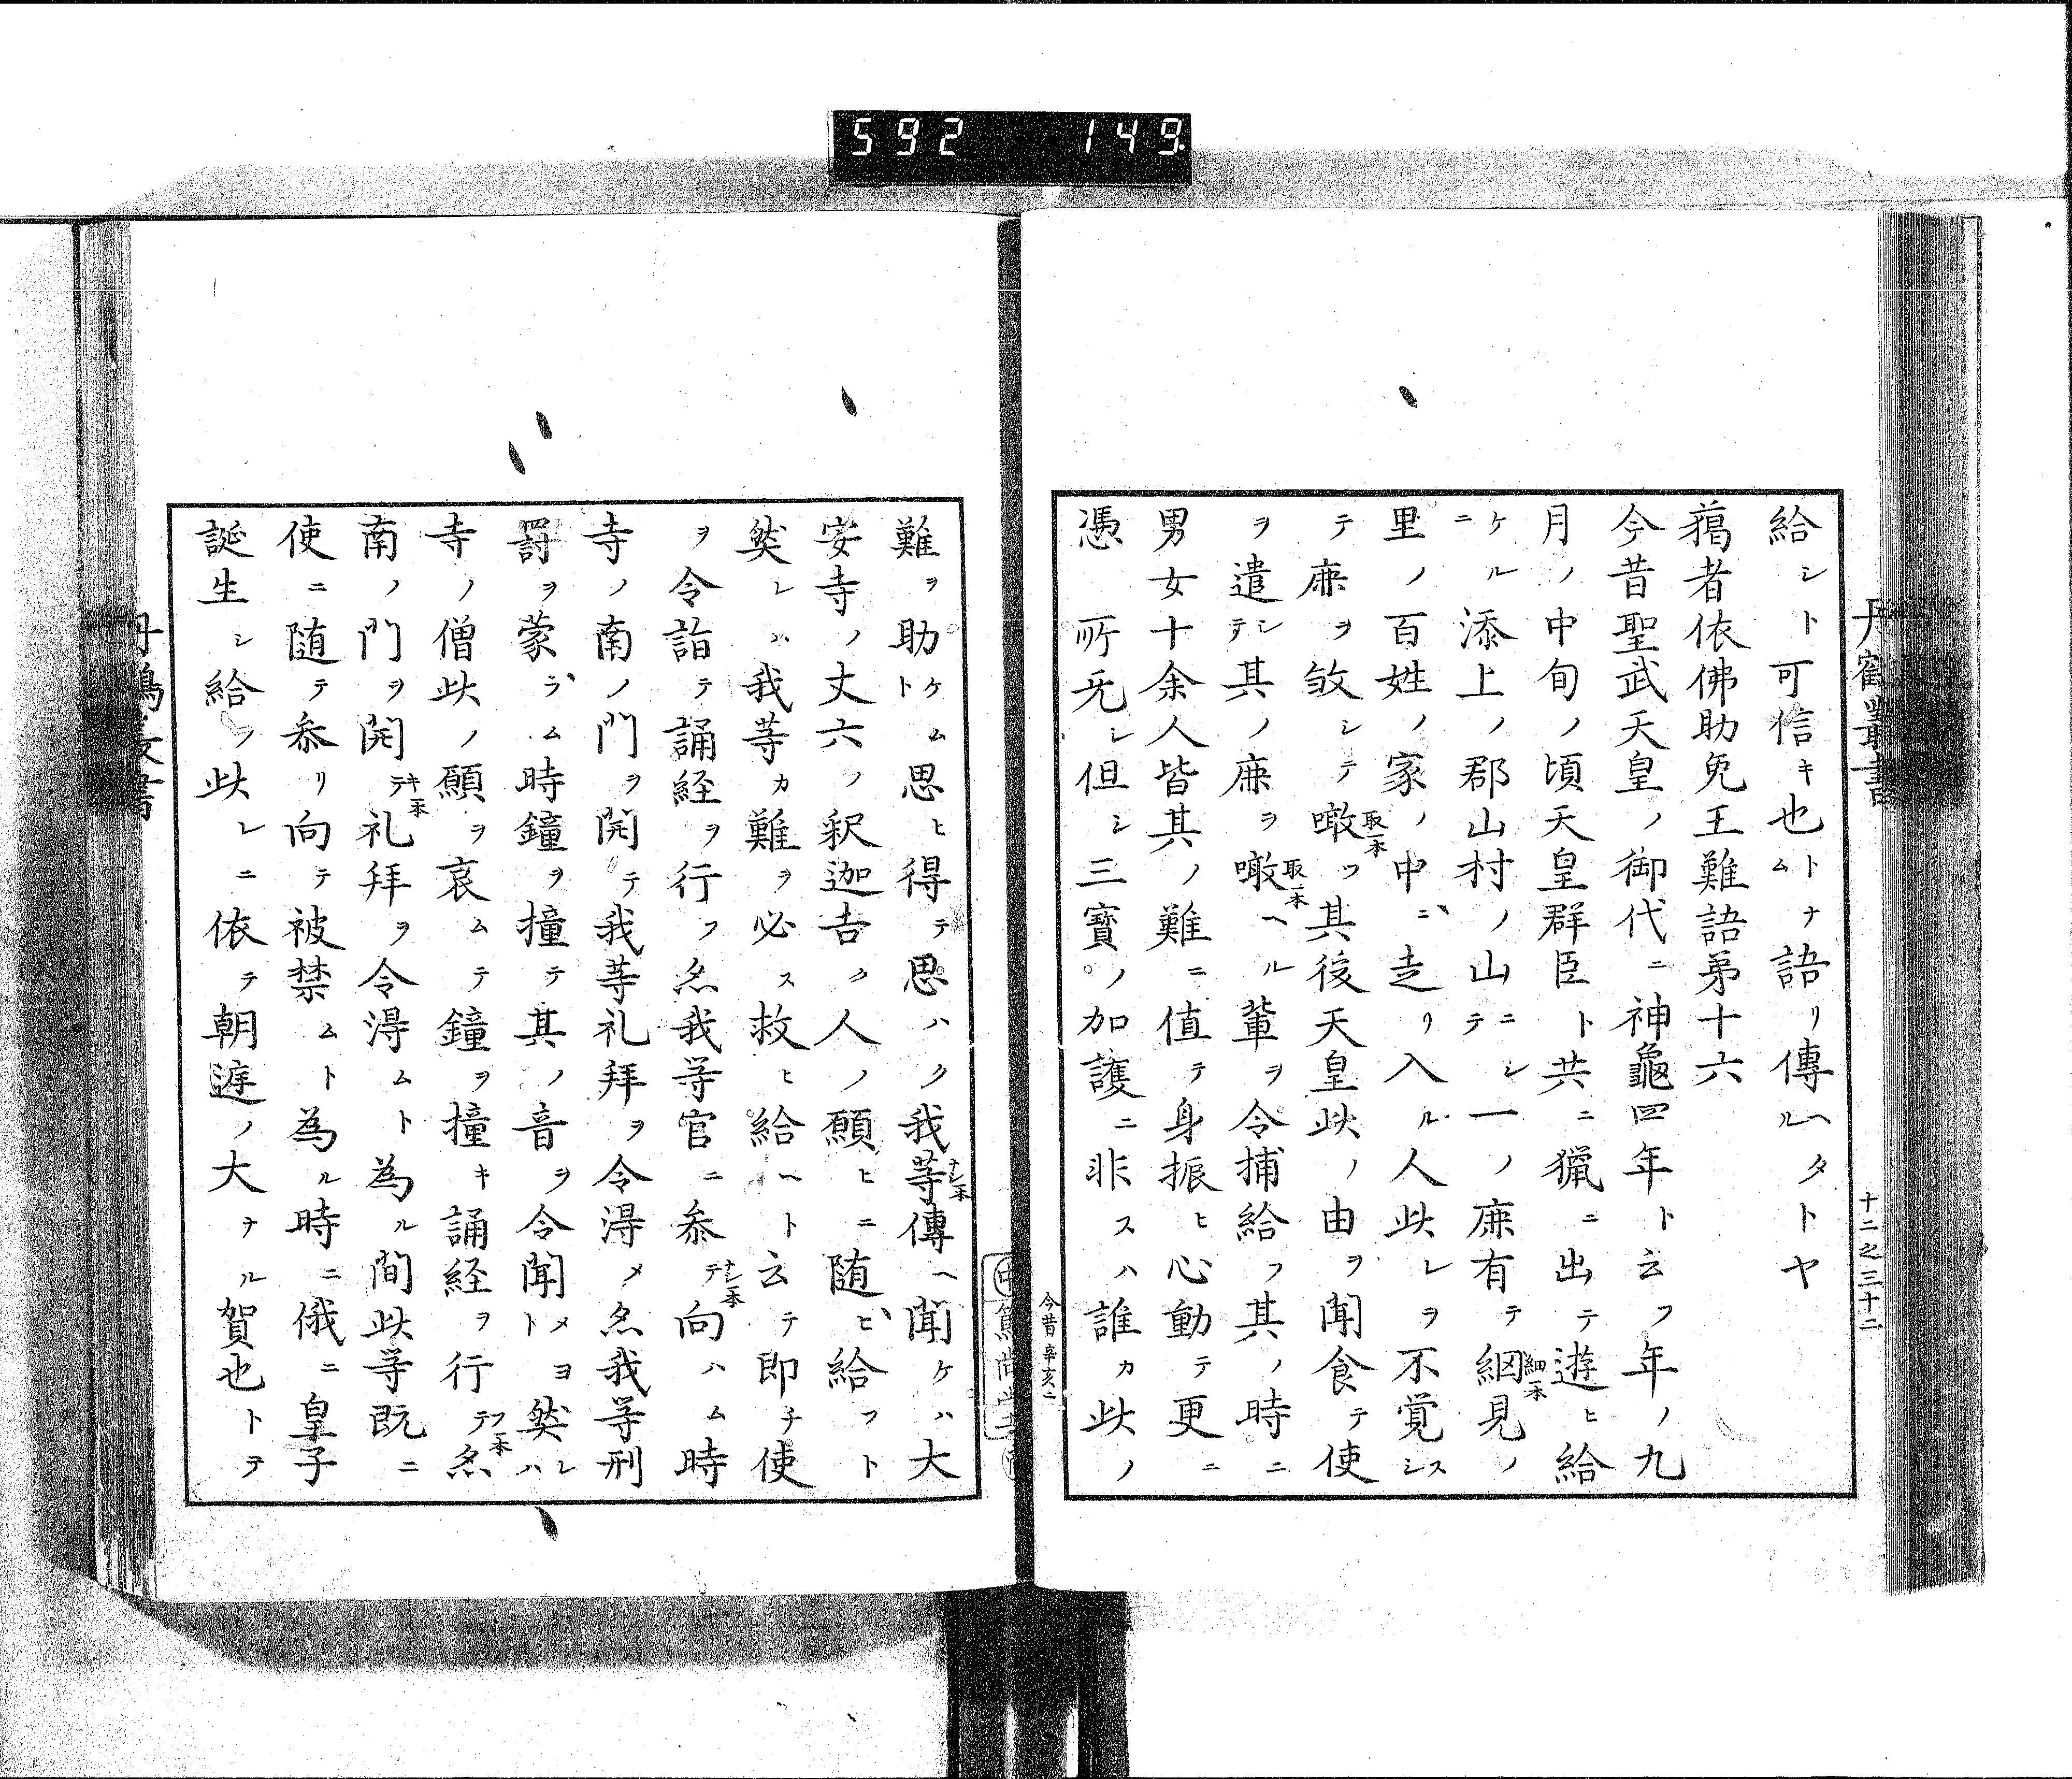 592 149
丹鶴叢書
十二之三十二
給シト可信キ也トナム語リ傳ヘルタトヤ
藐者依佛助免王難語第十六
今昔聖武天皇ノ御代ニ神龜四年ト云フ年ノ九
月ノ中旬ノ頃天皇群臣ト共ニ猟ニ出テ遊ヒ給
ケルニ添上ノ郡山村ノ山ニシテ一ノ鹿有テ細一本網見ノ
里ノ百姓ノ家ノ中ニ走リ入ル人此レヲ不覚スシ
テ鹿ヲ敓シテ取一本噉ツ其後天皇此ノ由ヲ聞食テ使
ヲ遣シテ其ノ鹿ヲ取一本噉ヘル輩ヲ令捕給フ其ノ時ニ
男女十余人皆其ノ難ニ値テ身振ヒ心動テ更ニ
憑所旡シ但シ三寳ノ加護ニ非スハ誰カ此ノ
今昔 辛亥ニ
難ヲ助ケムト思ヒ得テ思ハク我等ナシ一本傳ヘ聞ケハ大
安寺ノ丈六ノ釈迦吉ク人ノ願ヒニ随ヒ給フト
然レハ我等カ難ヲ必ス救ヒ給ヘト云テ即チ使
ヲ令詣テ誦経ヲ行フ亦我等官ニ参テナシ一本向ハム時
寺ノ南ノ門ヲ開テ我等礼拜ヲ令得メ亦我等刑
罸ヲ蒙ラム時鐘ヲ撞テ其ノ音ヲ令聞メヨト然レハ
寺ノ僧此ノ願ヲ哀ムテ鐘ヲ撞キ誦経ヲ行テフ一本亦
南ノ門ヲ開テキ一本礼拜ヲ令得ムト為ル間此等既ニ
使ニ随テ参リ向テ被禁ムト為ル時ニ俄ニ皇子
誕生シ給ノ此レニ依テ朝遅ノ大ナル賀也トテ